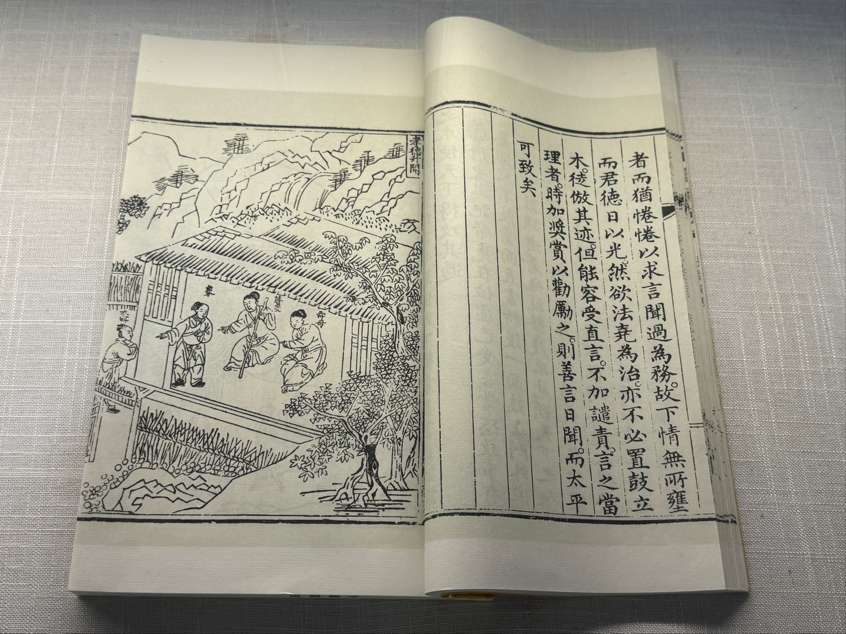 者而猶惓惓以求言聞過為務。故下情無所壅
而君德日以光。然欲法堯為治。亦不必置鼓立
木。徒倣其迹。但能容受直言。不加譴責。言之當
理者。時加獎賞以勸勵之。則善言日聞。而太平
可致矣
孝德升聞